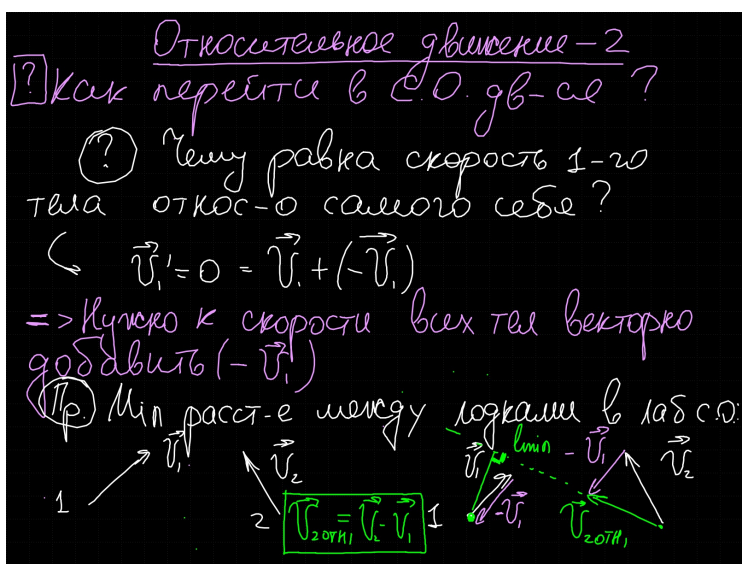 Относительное движение – 2
? Как перейти в С.О. дв-ся ?
? Чему равна скорость 1-го
тела относ-о самого себя ?
V₁' = 0 = V₁ + (-V₁)
=> Нужно к скорости всех тел векторно
добавить (-V₁)
Пр. Min расст-е между лодками в лаб с.о:
V₁ V₂ V₁ lmin -V₁ V₂
1 2 V₂отн₁ = V₂ - V₁ 1 -V₁ V₂отн₁